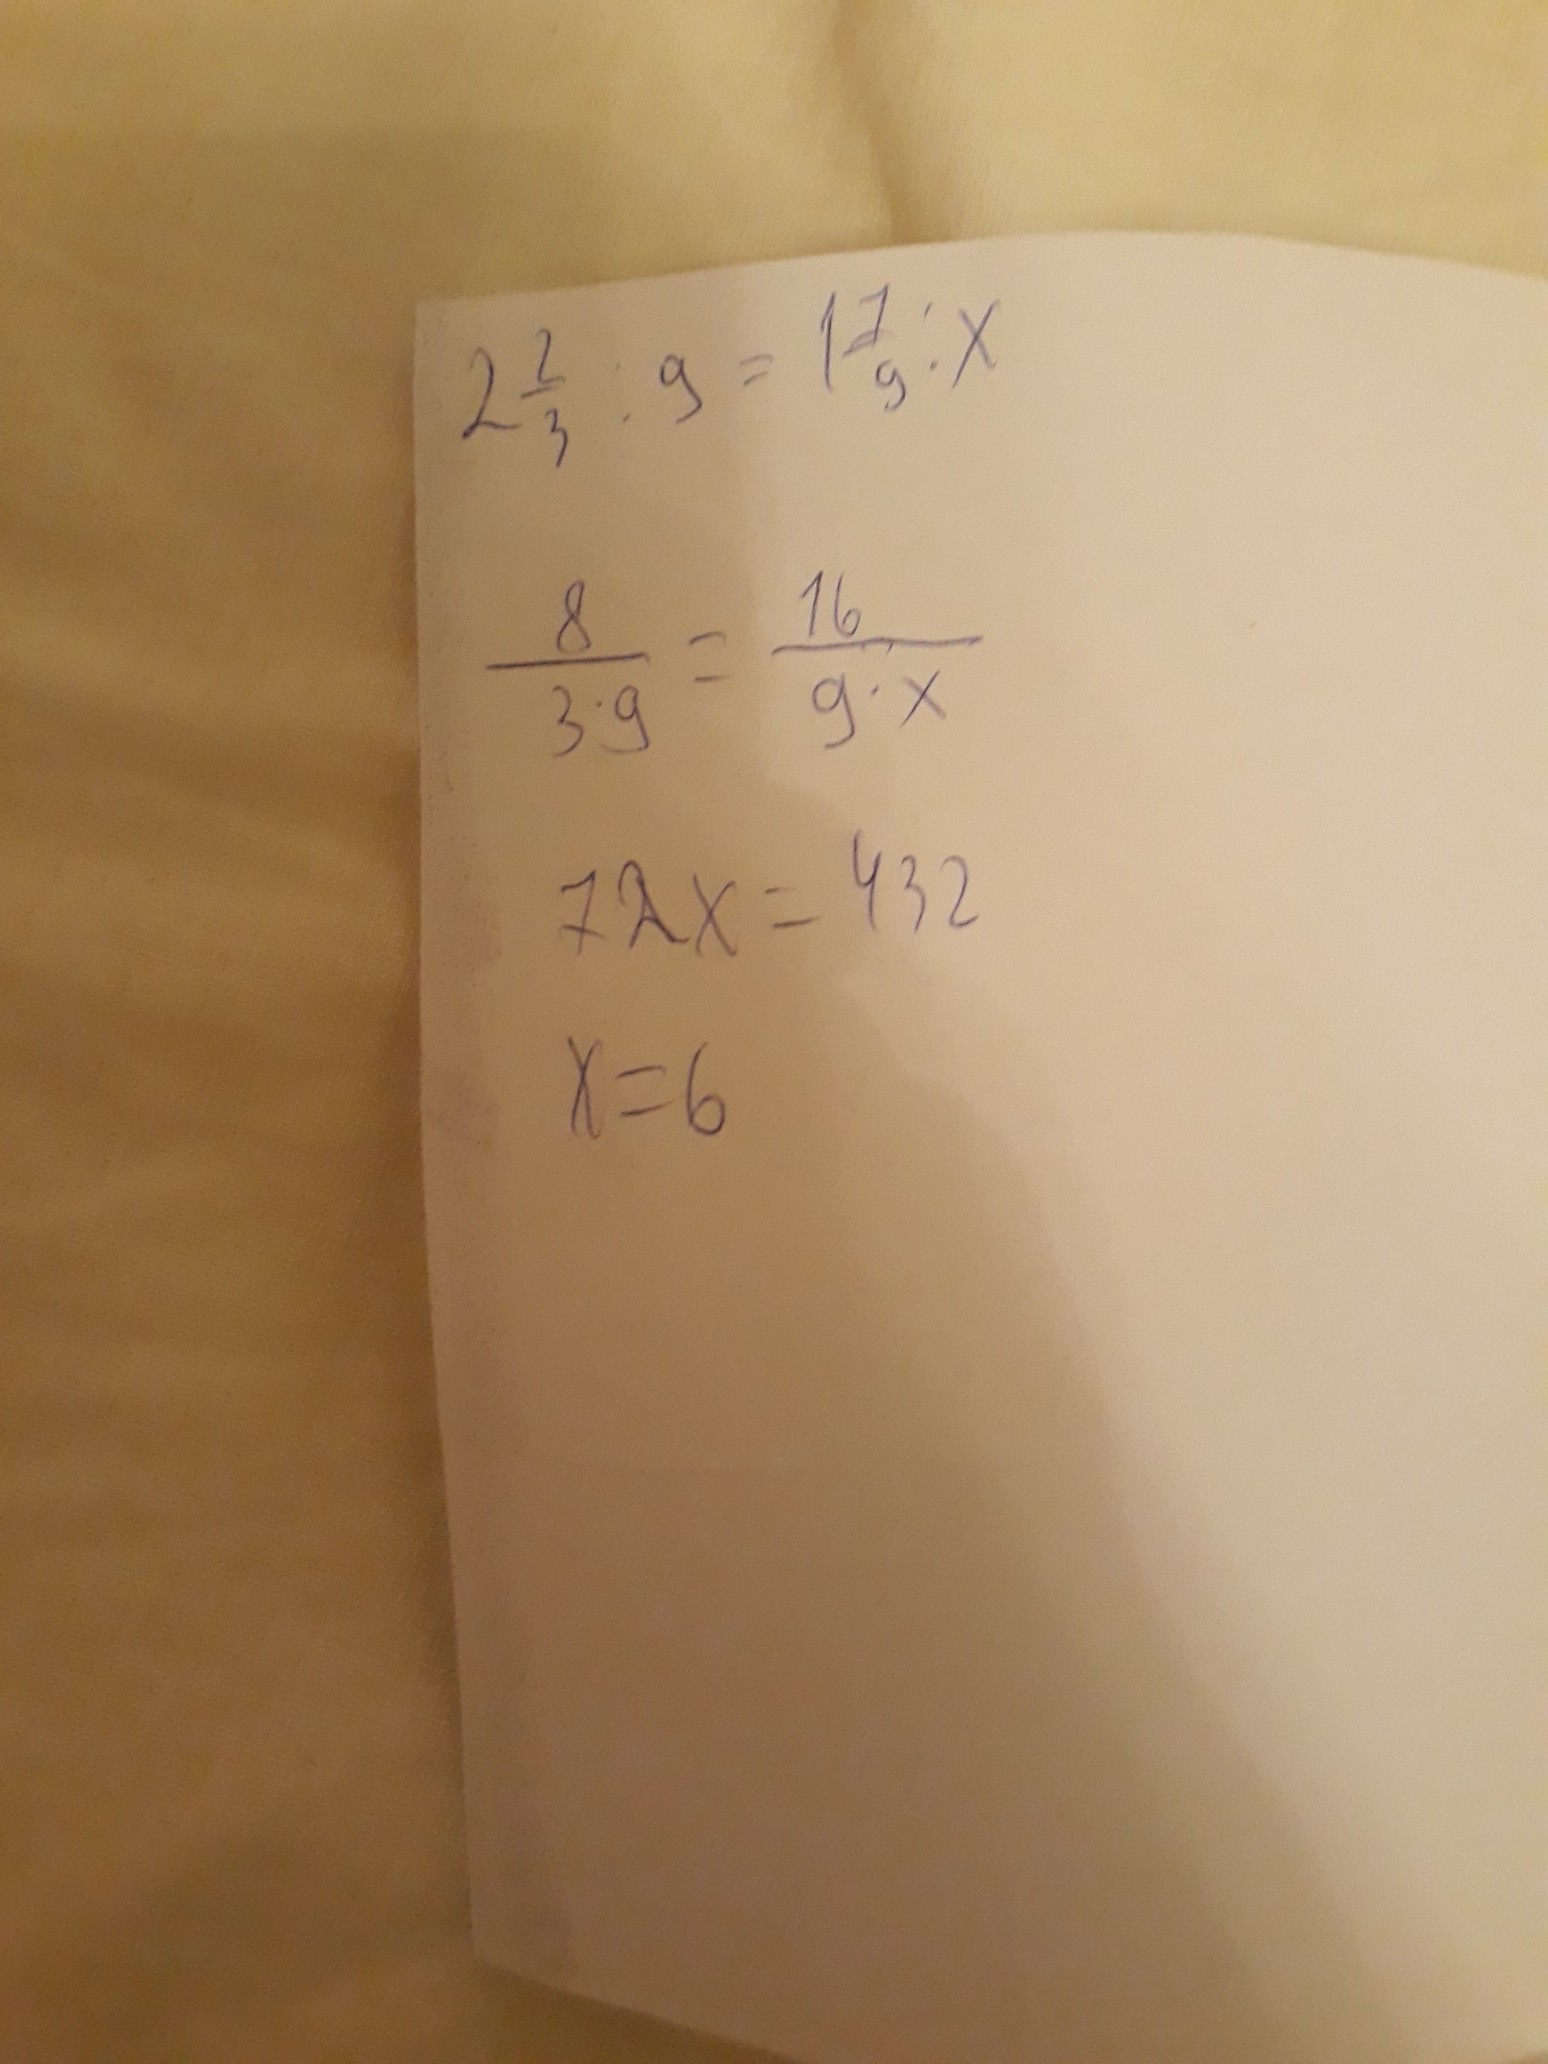 2 2/3 : 9 = 1 7/9 : x
8/(3·9) = 16/(9·x)
72x = 432
x = 6